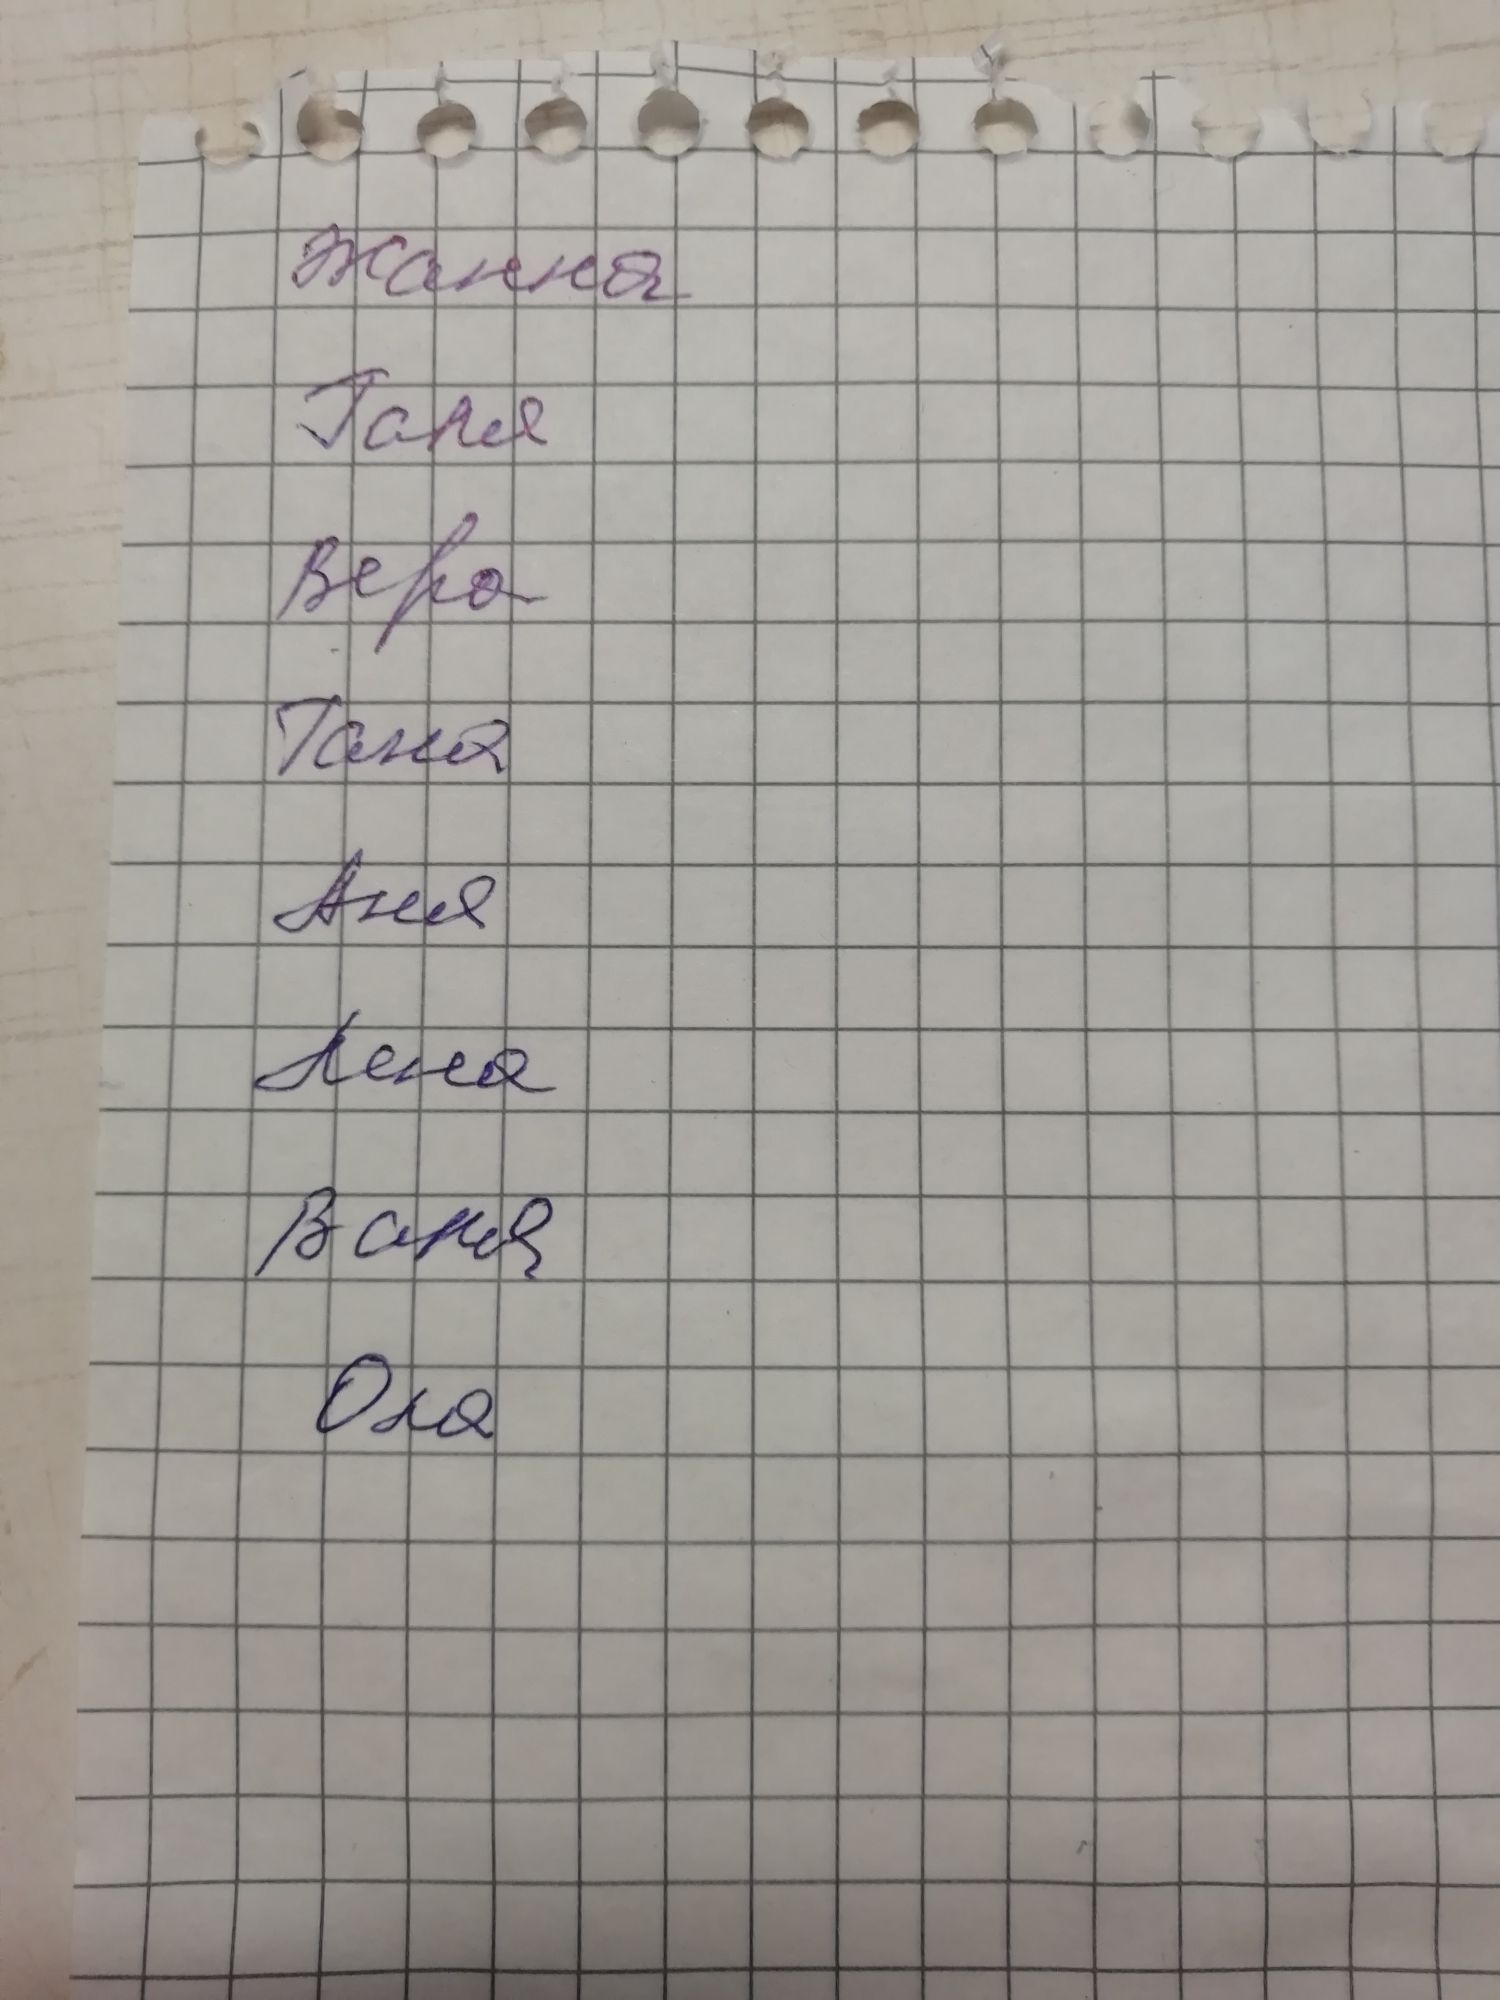 Жанна
Таня
Вера
Тана
Аня
Лена
Ваня
Ола